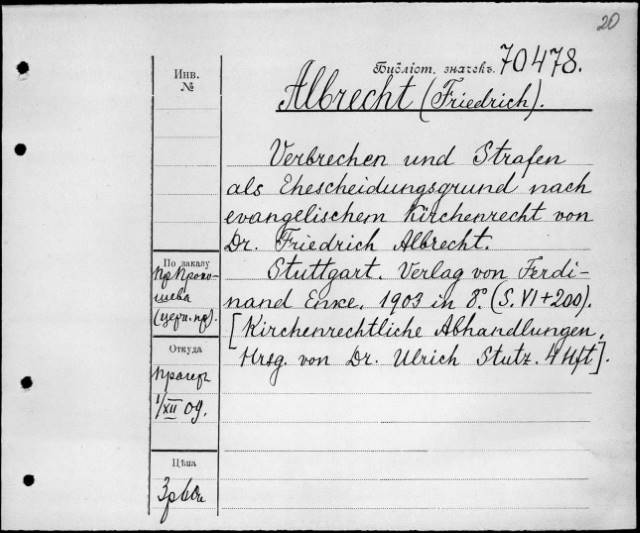 20
Инв.
№
Библіот. значекъ 70478.
Albrecht (Friedrich).
Verbrechen und Strafen
als Ehescheidungsgrund nach
evangelischem Kirchenrecht von
Dr. Friedrich Albrecht.
Stuttgart. Verlag von Ferdi-
nand Enke. 1903 in 8°. (S. VI + 200).
[Kirchenrechtliche Abhandlungen,
Hrsg. von Dr. Ulrich Stutz. 4 Hft].
По заказу
пр. Проко-
шева
(церк. пр.).
Откуда
Прагеръ
1/XII 09.
Цѣна
3р 60к